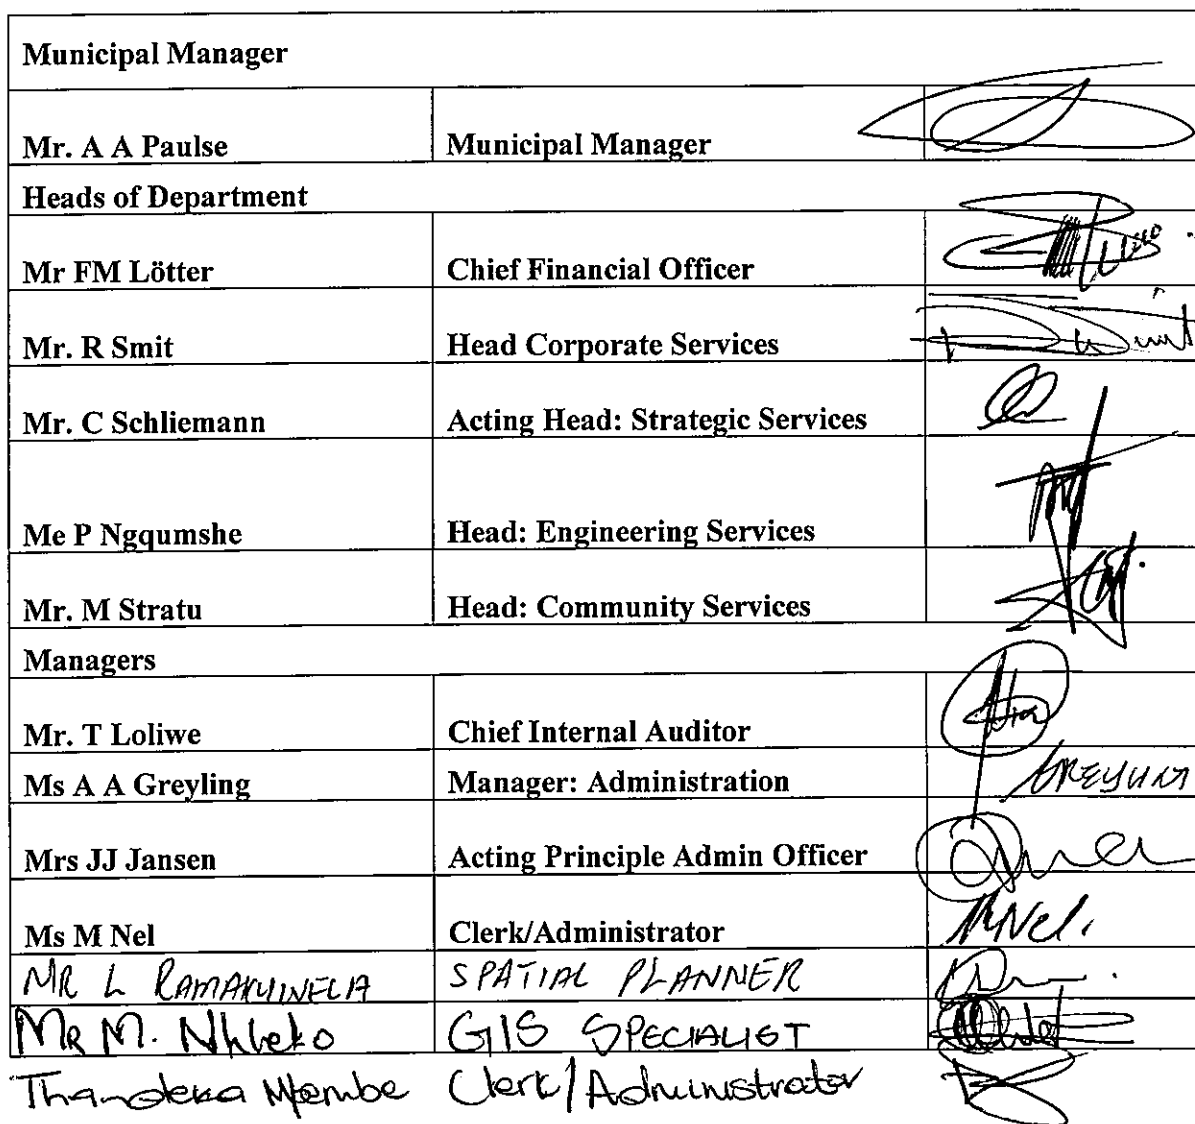 Municipal Manager
Mr. A A Paulse Municipal Manager
Heads of Department
Mr FM Lötter Chief Financial Officer
Mr. R Smit Head Corporate Services
Mr. C Schliemann Acting Head: Strategic Services
Me P Ngqumshe Head: Engineering Services
Mr. M Stratu Head: Community Services
Managers
Mr. T Loliwe Chief Internal Auditor
Ms A A Greyling Manager: Administration
Mrs JJ Jansen Acting Principle Admin Officer
Ms M Nel Clerk/Administrator MNel.
MR L SPATIAL PLANNER
MR M. GIS SPECIALIST
Thandeka Clerk/Administrator